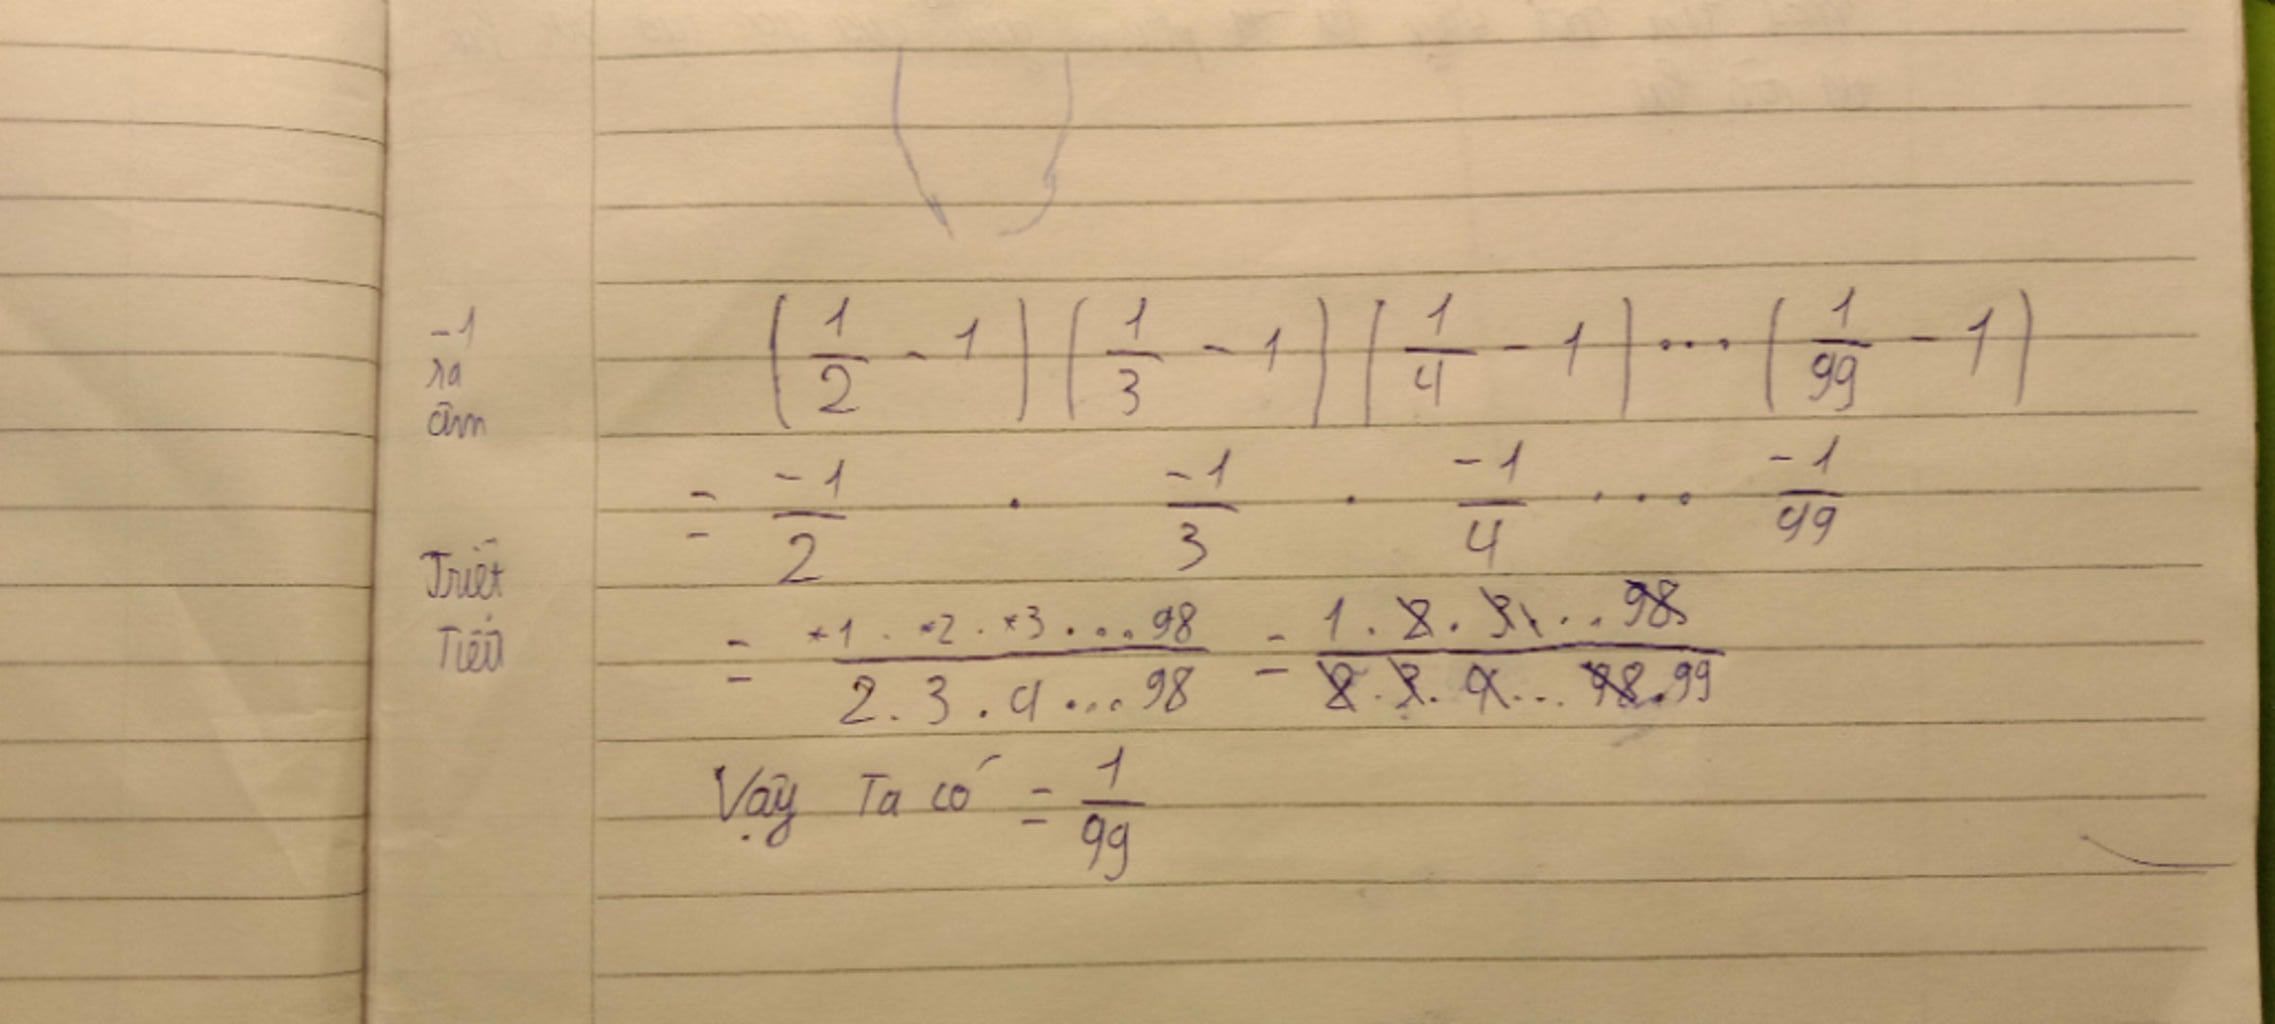 -1
ra
âm
(1/2 - 1) (1/3 - 1) (1/4 - 1) ... (1/99 - 1)
= -1/2 . -1/3 . -1/4 ... -1/99
Triệt
Tiêu
= 1 . 2 . 3 ... 98 / 2 . 3 . 4 ... 98 = 1 . 2 . 3 ... 98 / 2 . 3 . 4 ... 98 . 99
Vậy Ta có = 1/99